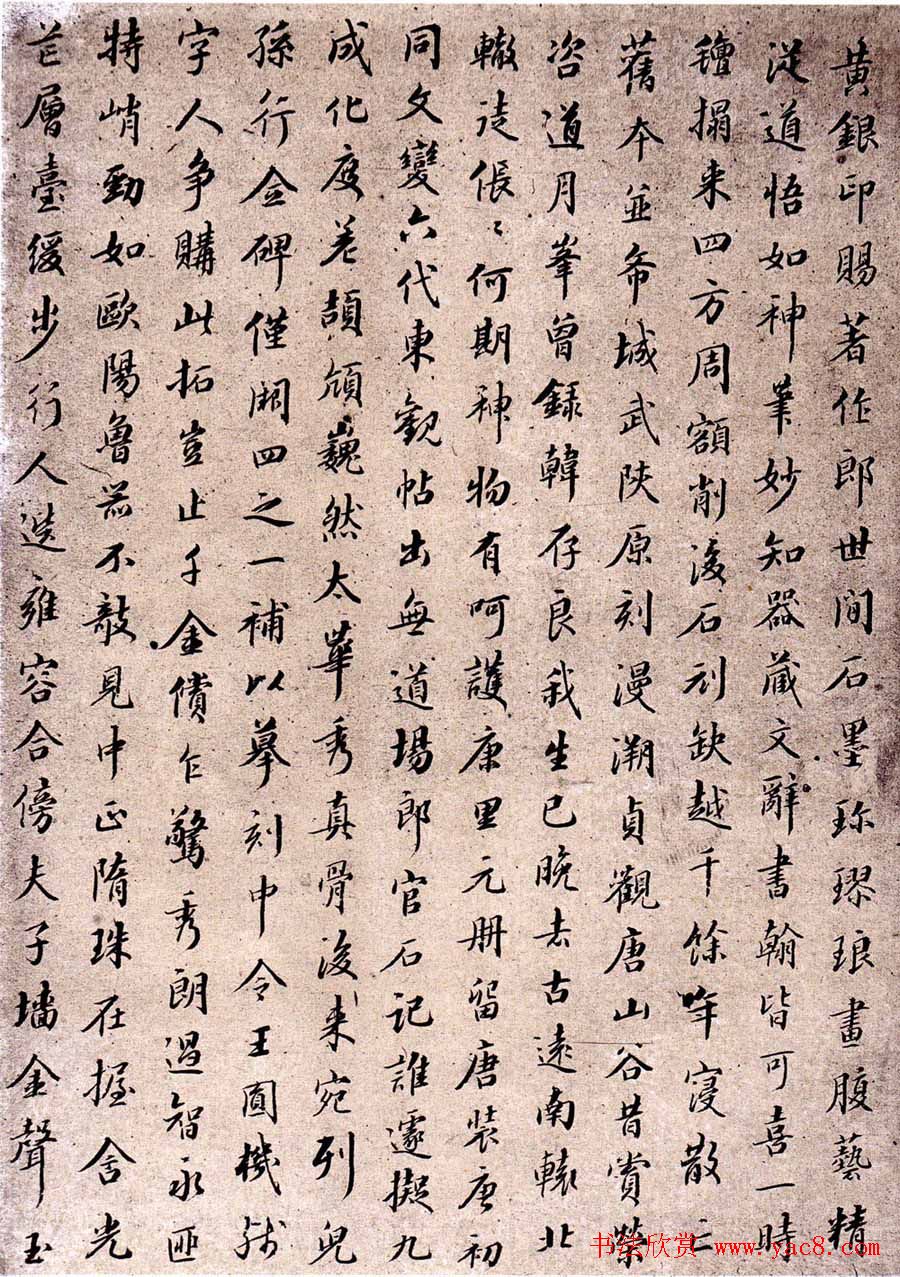 黃銀印賜著作郎世間石墨珎璆琅畫腹藝精
從道悟如神筆妙知器蔵文辭書翰皆可喜一時
氊搨来四方周額削後石刓缺越千餘年寖散亡
舊本並希城武陝原刻漫溯貞觀唐山谷昔賞榮
咨道月峯曾録韓存良我生已晚去古逺南轅北
轍徒倀〻何期神物有呵護康里元冊留唐裝唐初
同文變六代東觀帖出無道場郎官石記誰遽擬九
成化度差頡頏巍然太華秀真骨後来宛列兒
孫行仝碑僅闕四之一補以摹刻中令王圓機
字人争購此拓豈止千金償乍驚秀朗過智永匝
特峭勁如歐陽魯器不敲見中正隋珠在握含光
芒層臺緩步行人選雍容合傍夫子墻金聲玉
书法欣赏 www.yac8.com